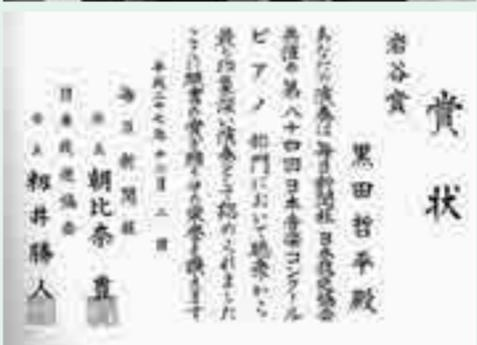 賞状
岩谷賞
黒田哲平殿
あなたの演奏は毎日新聞社 日本放送協会
共催の第八十四回日本音楽コンクール
ピアノ部門において聴衆から
最も印象深い演奏として認められました
ここに聴衆の賞を贈りその栄誉を讃えます
平成二十七年十二月二日
毎日新聞社
社長 朝比奈豊
日本放送協会
会長 籾井勝人